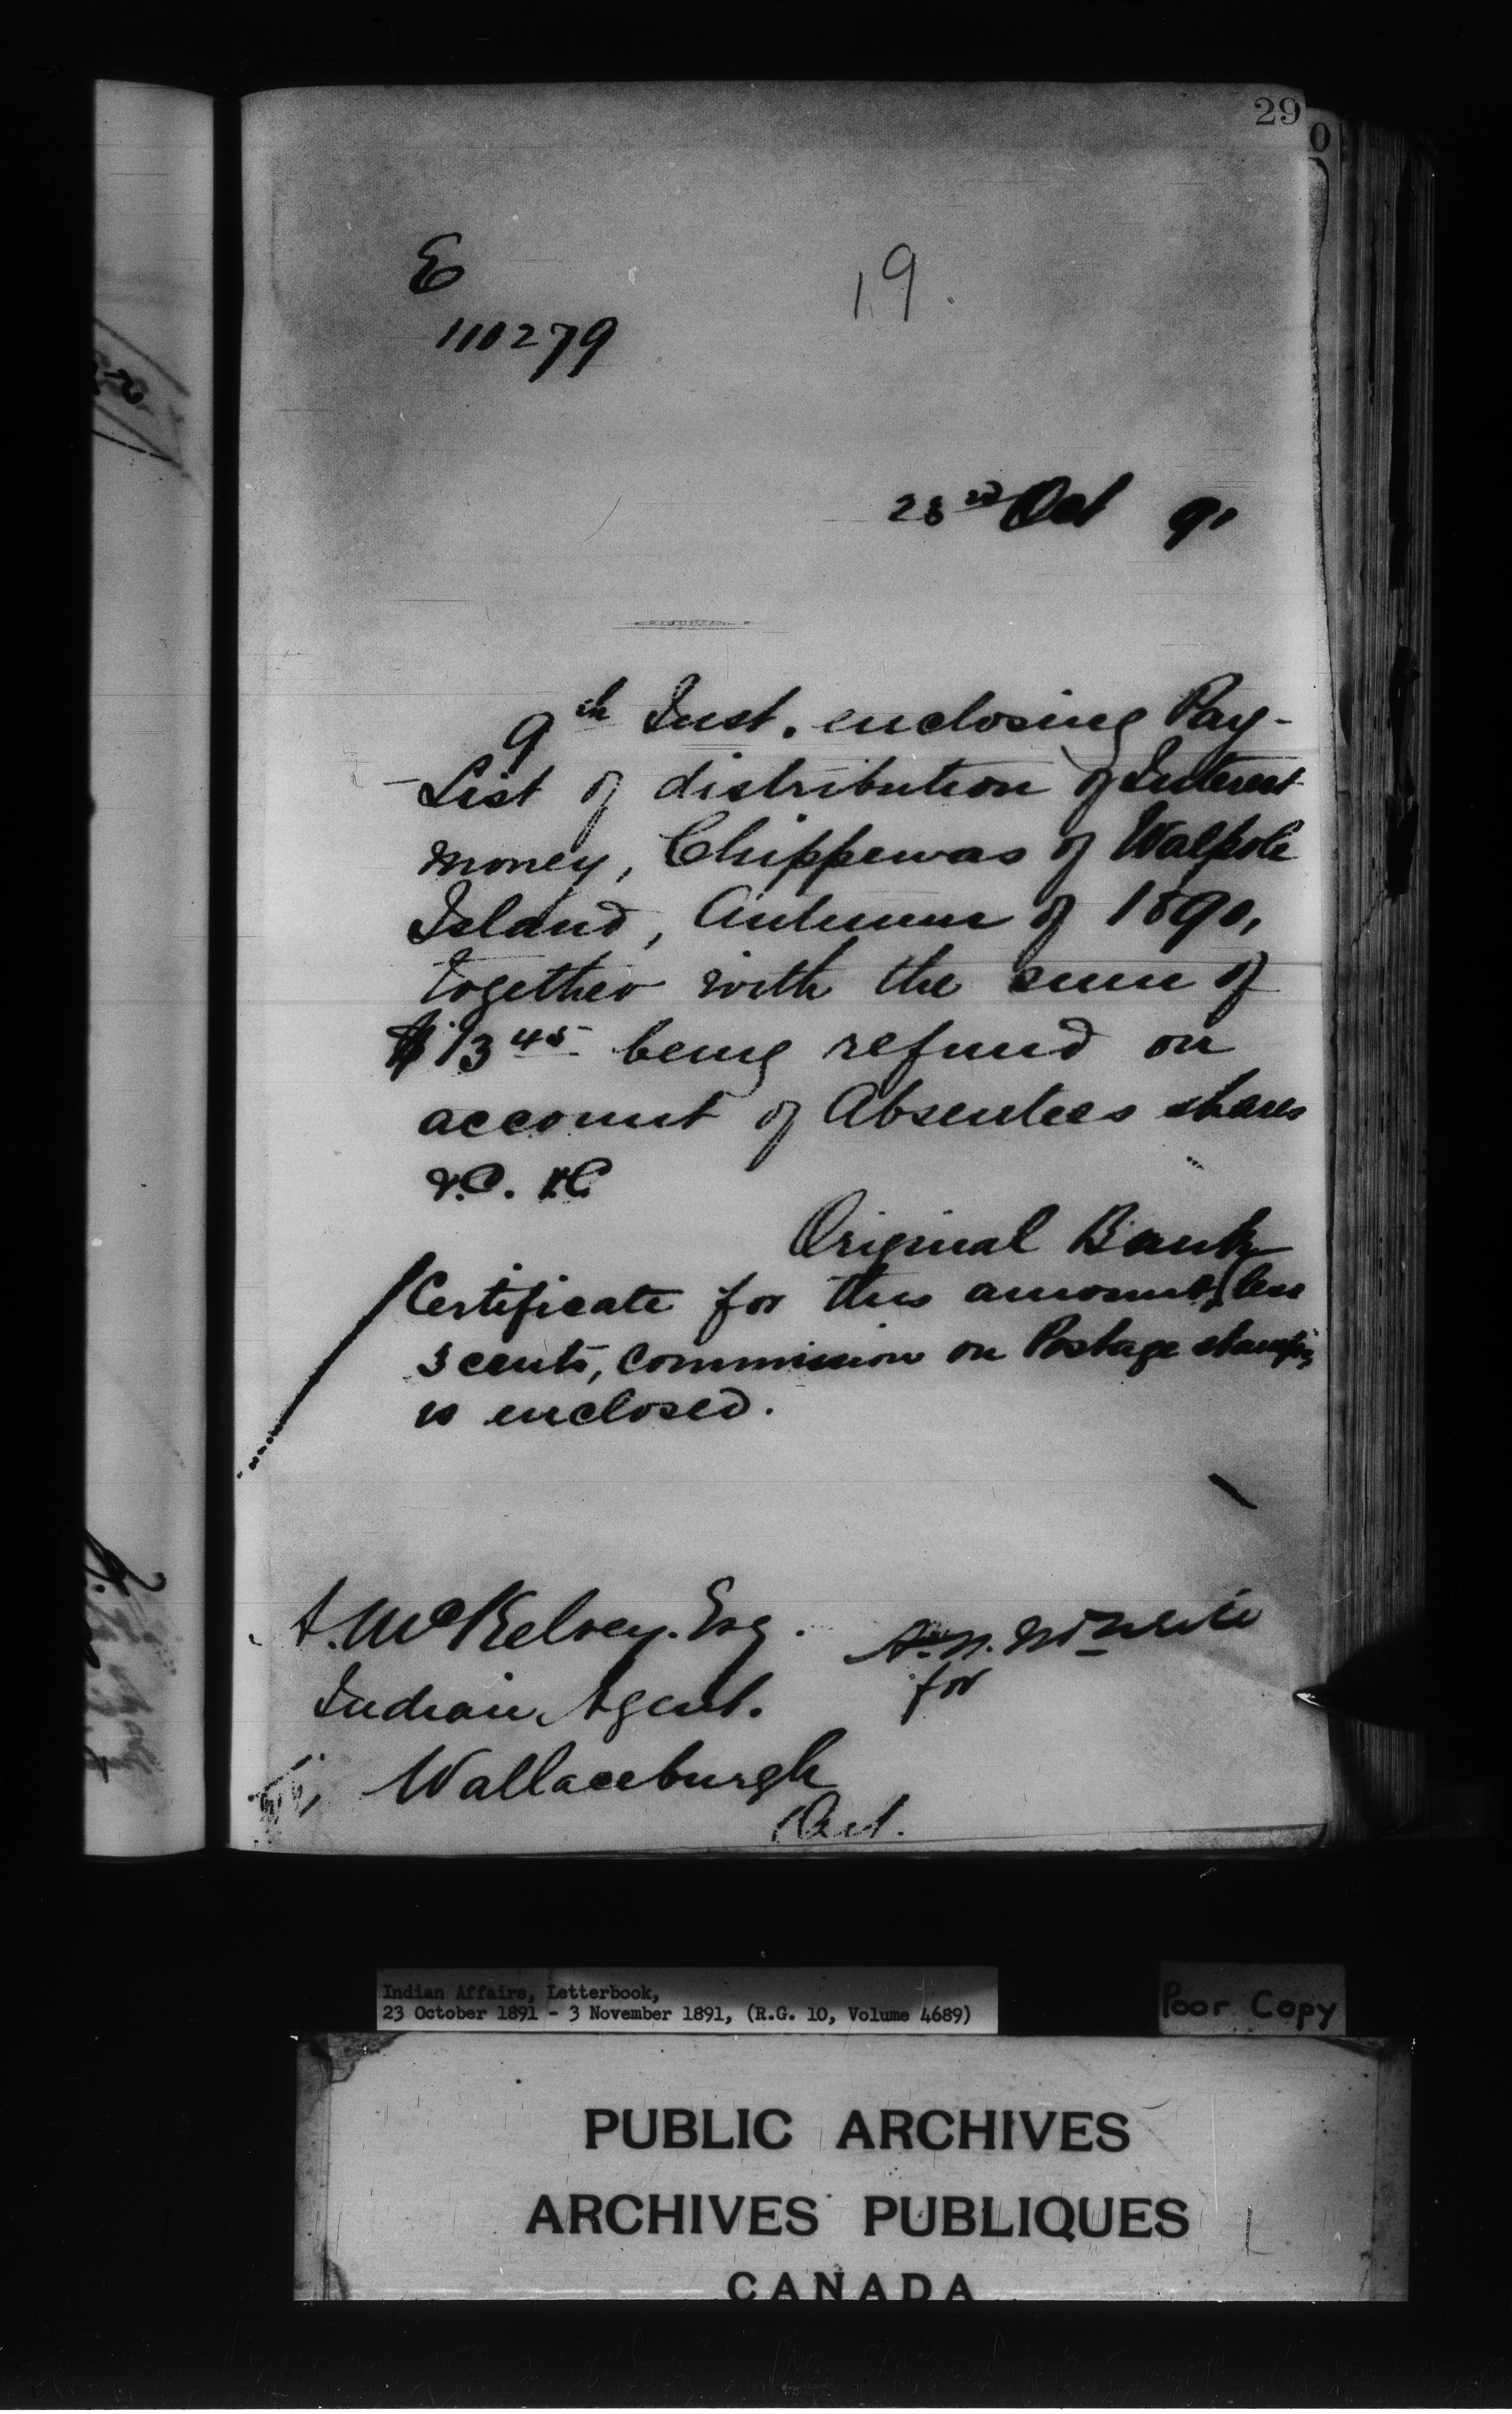 29
0
E
19.
110279
23rd Oct 91
9th Inst. enclosing Pay-
List of distribution of Interest
money, Chippewas of Walpole
Island, Autumn of 1890,
together with the sum of
$13 45 being refund on
account of Absentees shares
&C. &C
Original Bank
Certificate for this amount, (less
3 cents, Commission on Postage stamps,
is enclosed.
A. McKelvey. Esq.
for
Indian Agent.
Wallaceburgh
Ont.
Indian Affairs, Letterbook,
23 October 1891 - 3 November 1891, (R.G. 10, Volume 4689)
Poor Copy
PUBLIC ARCHIVES
ARCHIVES PUBLIQUES
CANADA